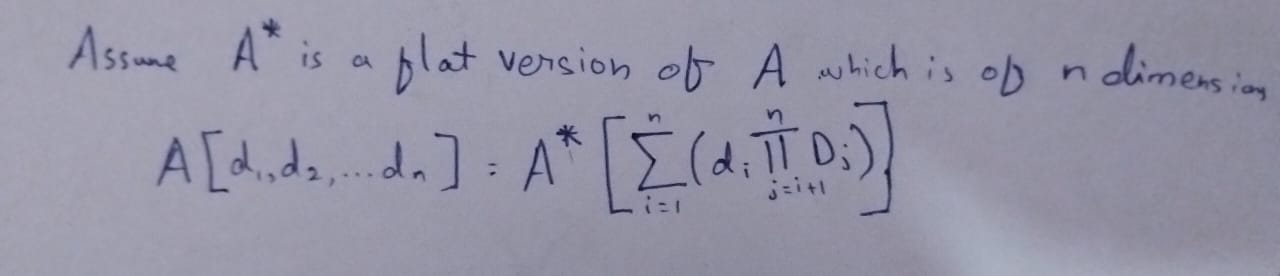 Assume A* is a flat version of A which is of n dimensions
A[d₁,d₂,...dₙ] = A*[∑ⁿᵢ₌₁(dᵢ∏ⁿⱼ₌ᵢ₊₁Dⱼ)]